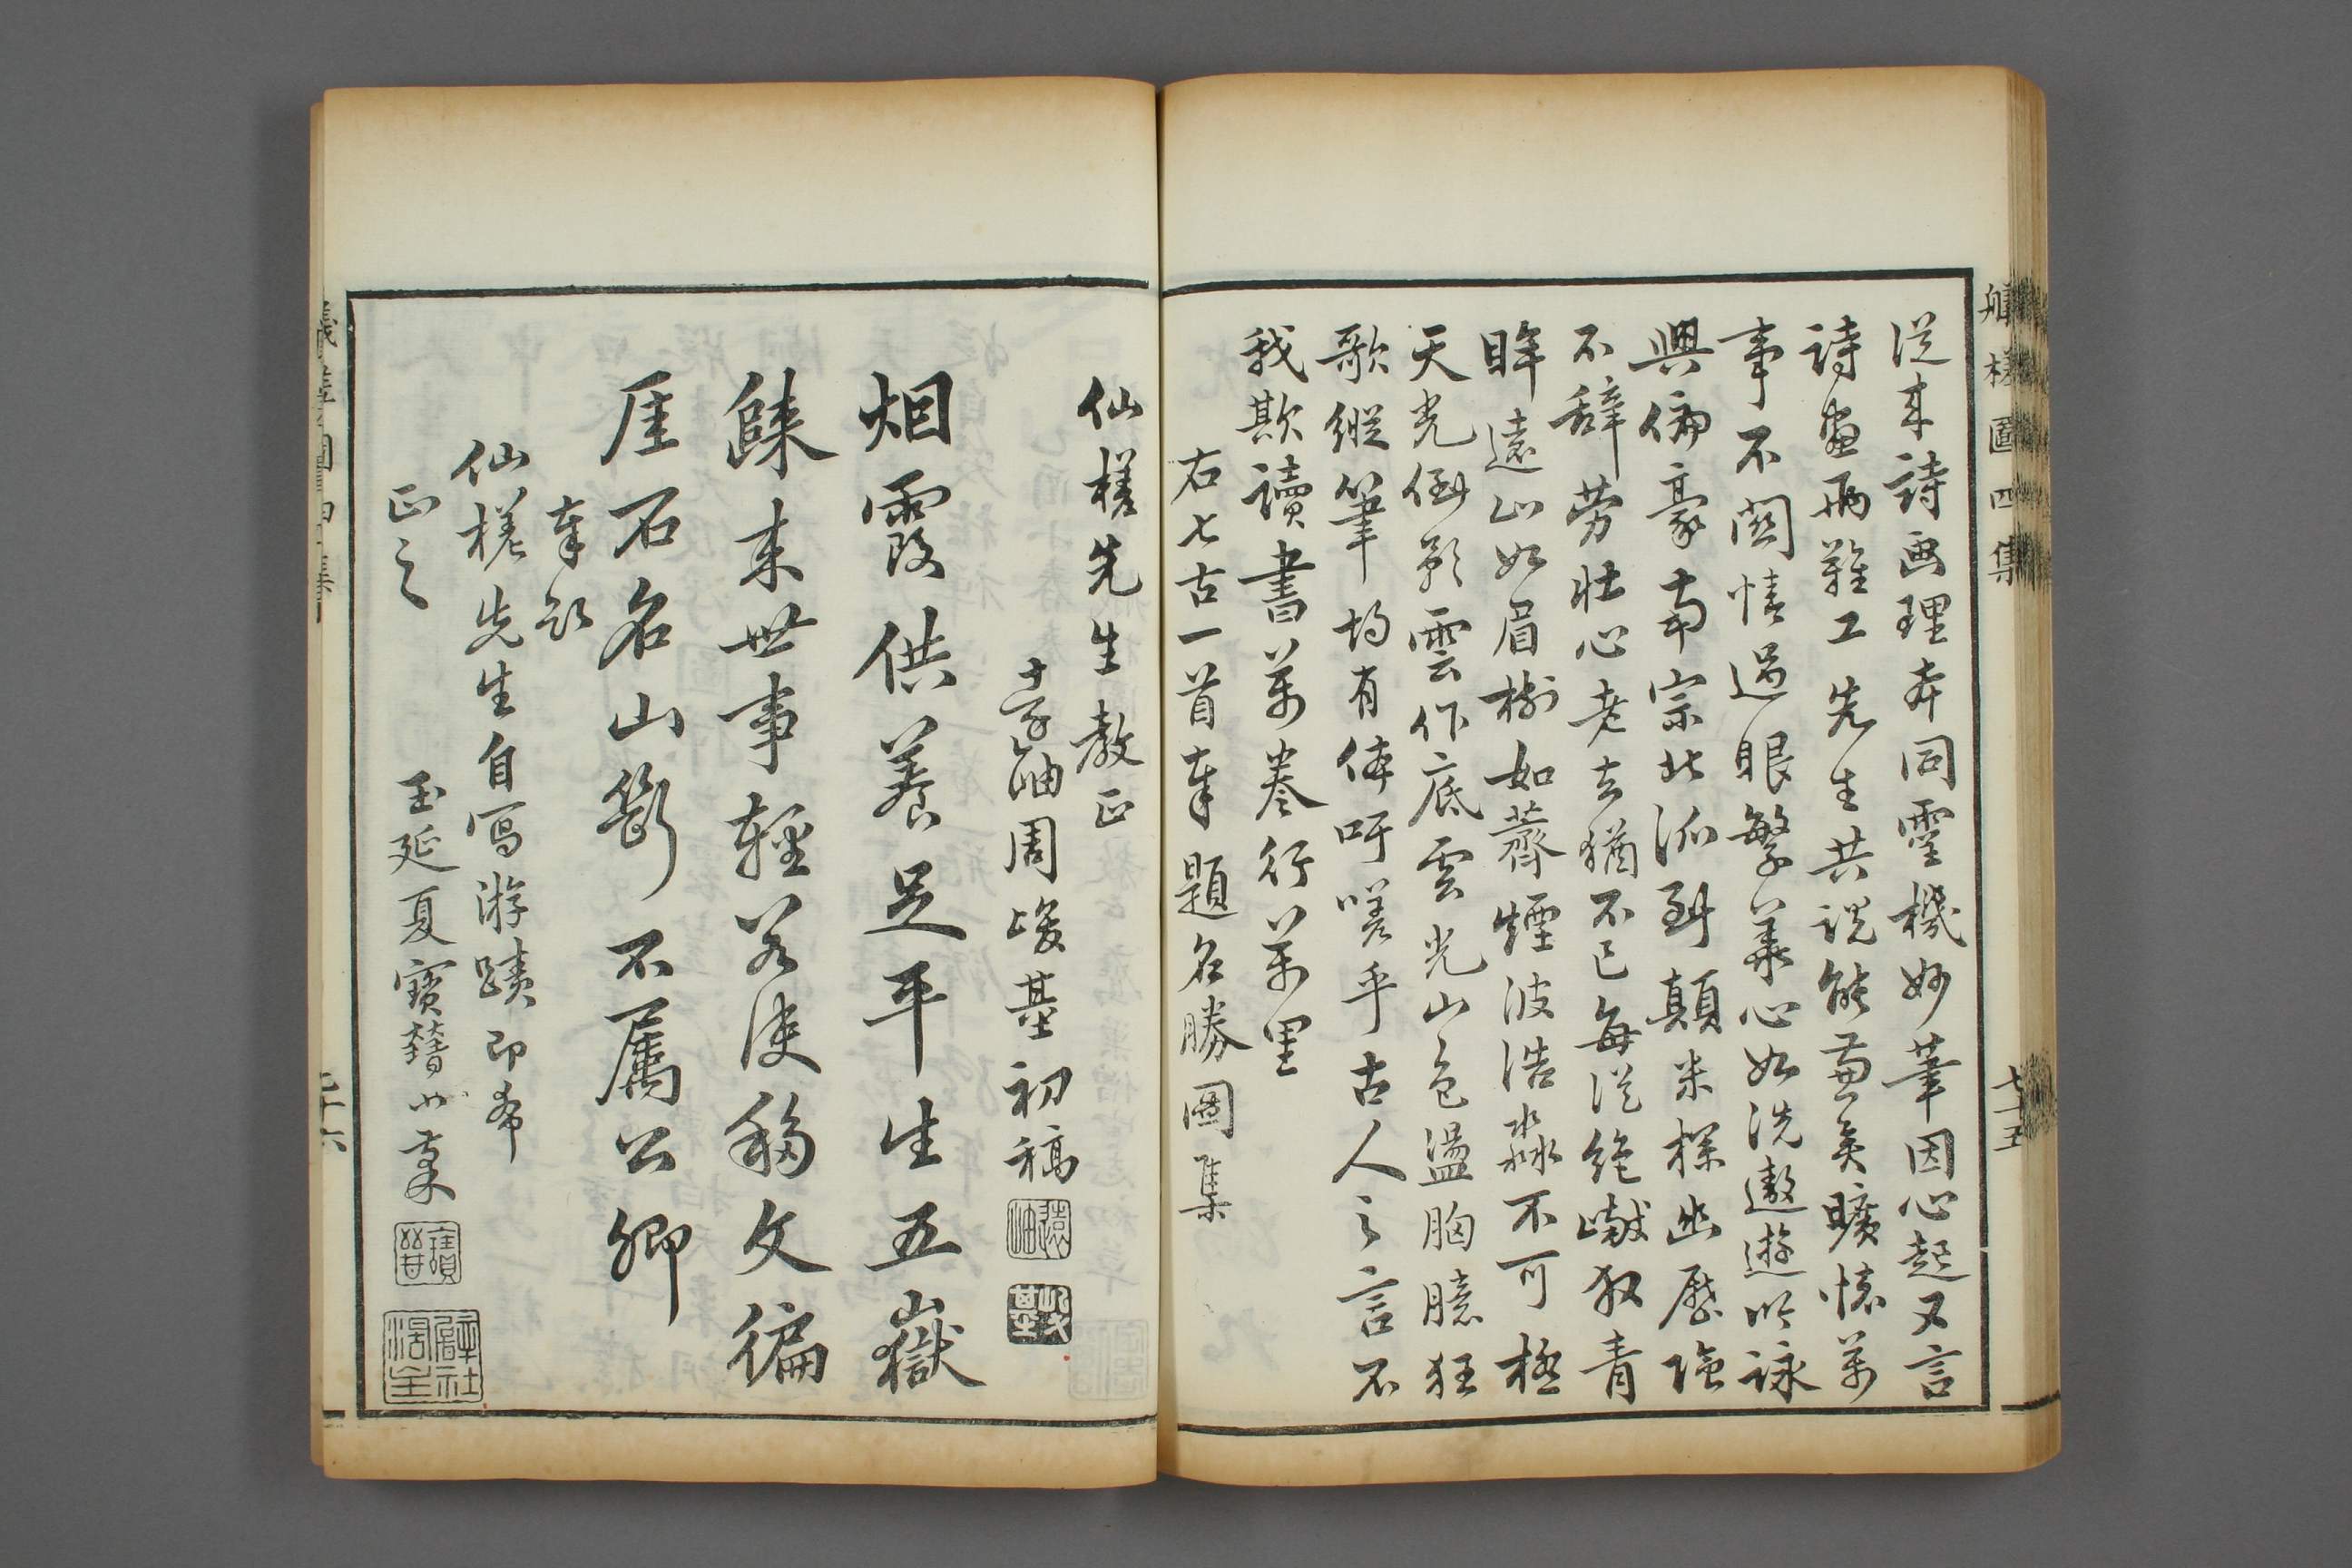 從来詩画理本同靈機妙筆因心起又言
詩畫兩難工先生共説能兼矣曠懷萬
事不關情過眼繁華心如洗遨遊吟詠
興偏豪南宗北派到顛米探幽歷險
不辞劳壮心老去猶不已每從絶巘放青
眸遠山如眉樹如薺煙波浩淼不可極
天光倒影雲作底雲光山色盪胸臆狂
歌縱筆均有体吁嗟乎古人之言不
我欺讀書萬卷行萬里
右七古一首奉題名勝圖集
仙槎先生教正
周峻基初稿
烟霞供養足平生五嶽
歸来世事輕若使移文徧
厓石名山斷不属公卿
奉題
仙槎先生自寫游蹟即希
正之
玉延夏寶晉小藁
槎圖四集
七十五